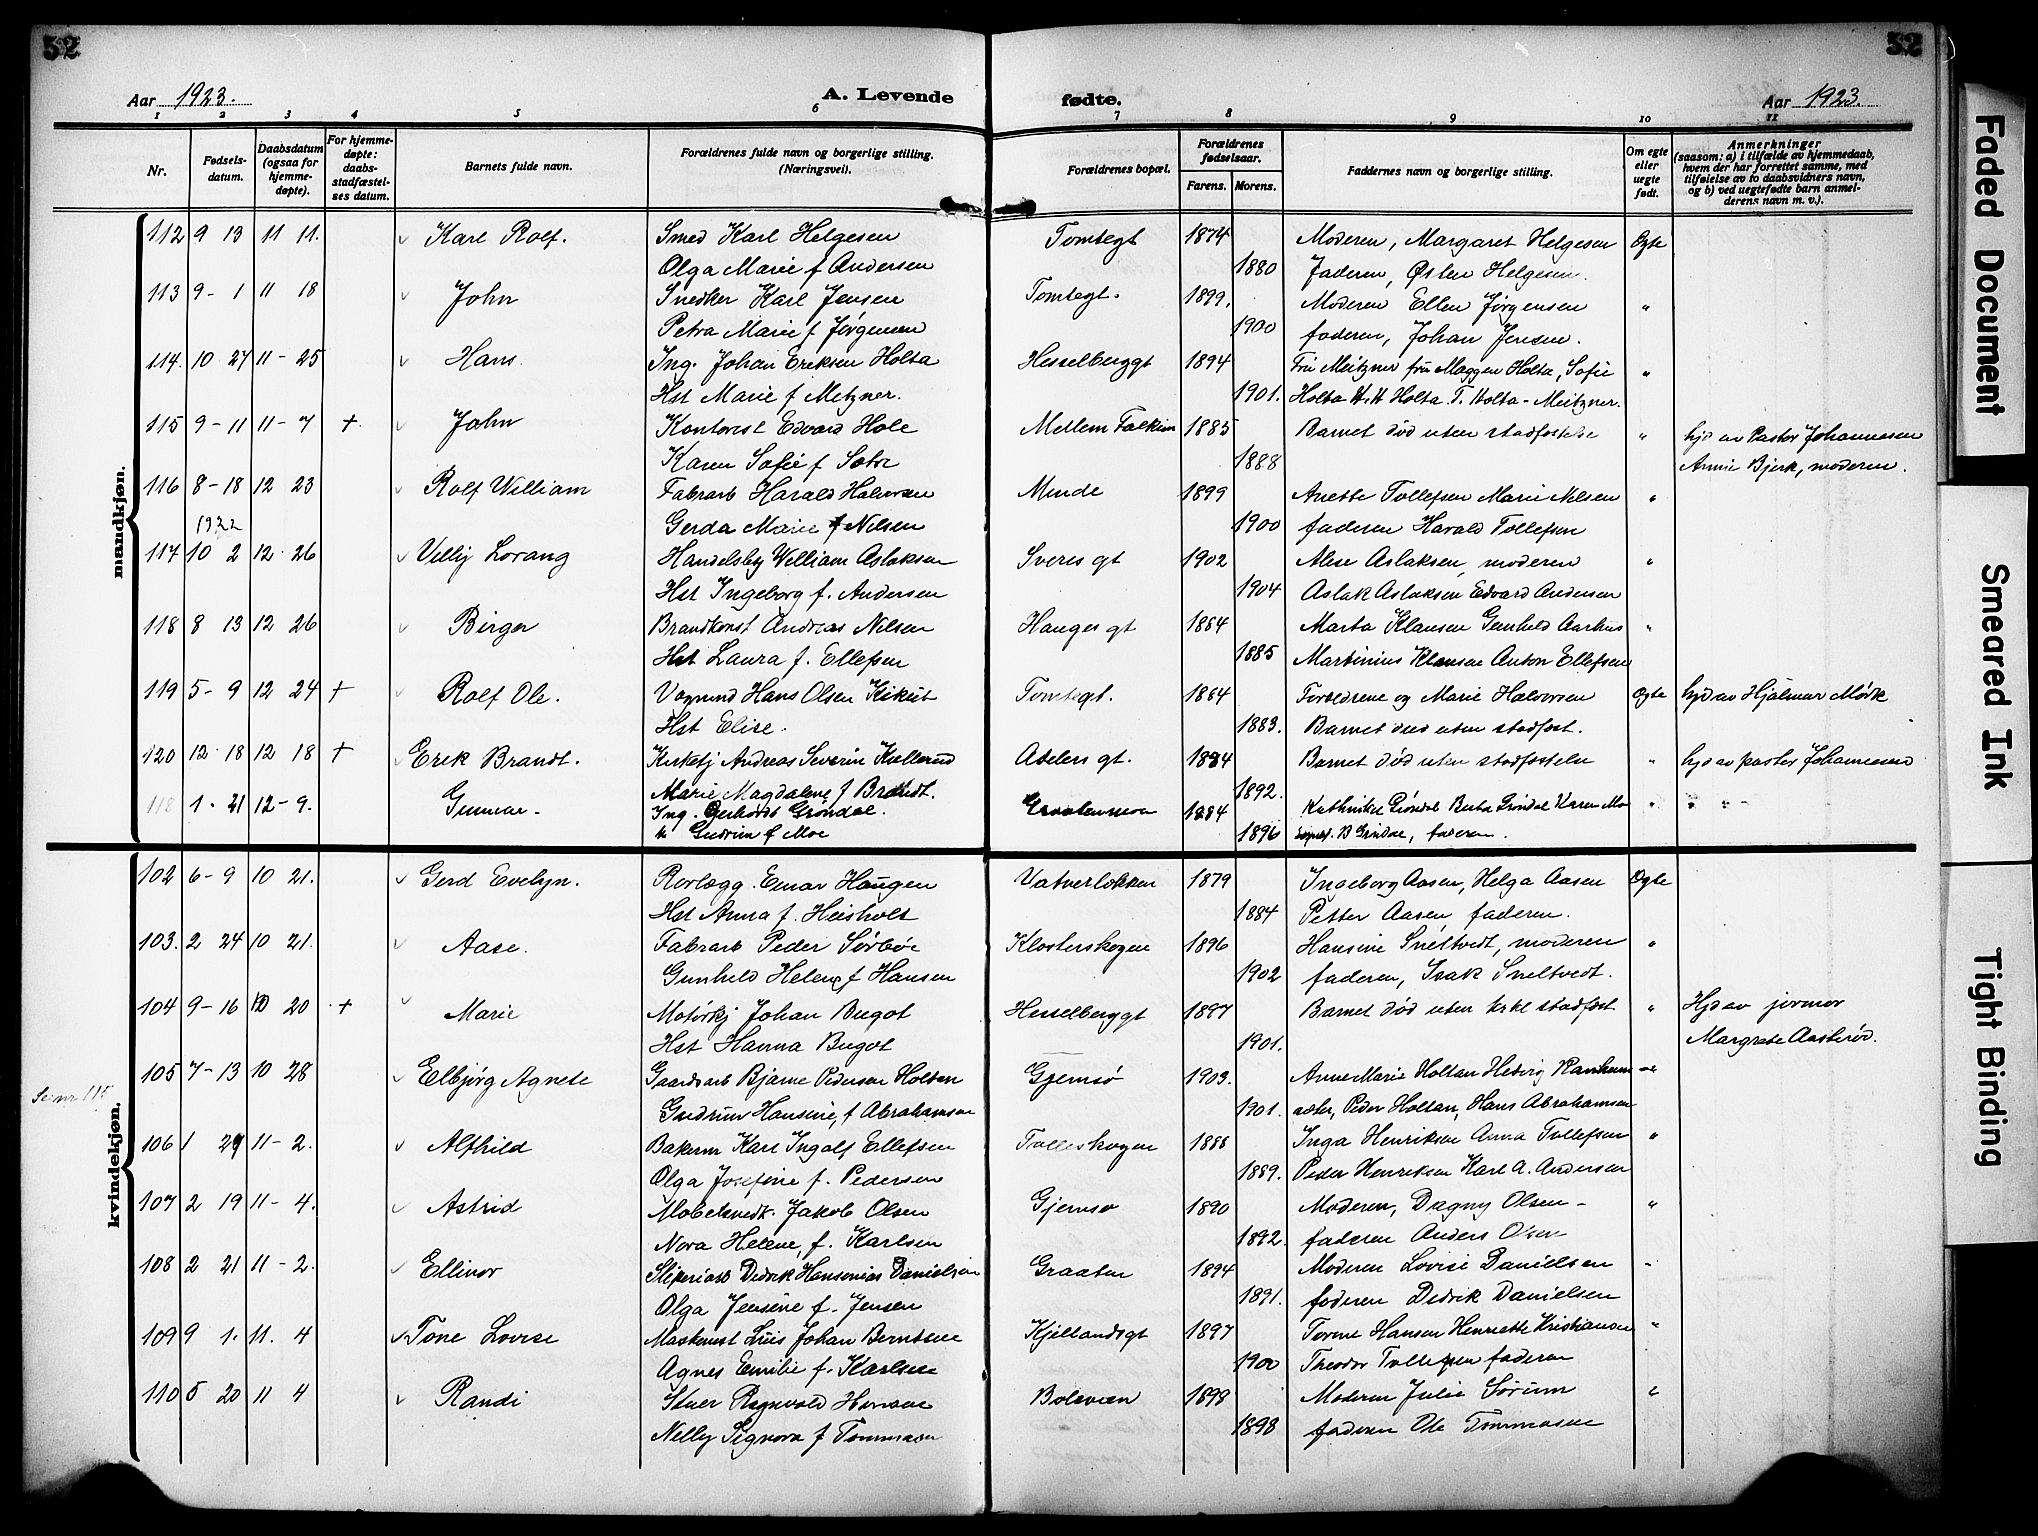 52
52
Aar 1923.
A. Levende
fødte.
Aar 1923.
1 2 3 4 5 6 7 8 9 10 11
Nr.
Fødsels-
datum.
Daabsdatum
(ogsaa for
hjemme-
døpte).
For hjemme-
døpte:
daabs-
stadfæstel-
ses datum.
Barnets fulde navn.
Forældrenes fulde navn og borgerlige stilling.
(Næringsvei).
Forældrenes bopæl.
Forældrenes
fødselsaar.
Farens. Morens.
Faddernes navn og borgerlige stilling.
Om egte
eller
uegte
født.
Anmerkninger
(saasom: a) i tilfælde av hjemmedaab,
hvem der har forrettet samme, med
tilføielse av to daabsvidners navn,
og b) ved uegtefødte barn anmel-
derens navn m. v.).
mandkjøn.
112 9 13 11 11. Karl Rolf. Smed Karl Helgesen Tomtegt 1874 Moderen, Margaret Helgesen Egte
Olga Marie f Andersen 1880 Faderen, Østen Helgesen.
113 9- 1 11 18 John Snedker Karl Jensen Tomtegt. 1899. Moderen Ellen Jørgensen "
Petra Marie f Jørgensen 1900 faderen, Johan Jensen.
114. 10 27 11-25 Hans. Ing. Johan Eriksen Holta Hesselberggt 1894 Fru Meitzner fru Maggen Holta, Sofie "
Hst Marie f Metzner. 1901. Holta H. H Holta. T. Holta-Meitzner.
115 9-11 11-7 + John Kontorist Edvard Hole Mellem Falkum 1885 Barnet død uten stadfostelse " hjd av Pastor Johannesen
Karen Sofie f 1888 Annie Bjerk, moderen.
116 8-18 12 23 Rolf William Fabrarb Harald Halvorsen Minde 1899 Anette Tollefsen Marie Nilsen "
1922 Gerda Marie f Nilsen 1900 faderen Harald Tollefsen
117 10 2 12 26 Villy Lorang Handelsbtj William Aslaksen Sveres gt 1902 Alise Aslaksen, moderen "
Hst Ingeborg f. Andersen 1904 Aslak Aslaksen Edvard Andersen
118 8 13 12 26 Birger Brandkonst Andreas Nilsen Hauges gt 1884 Marta Klausen Gunhild Aarhus "
Hst Laura f. Ellefsen 1885 Martinius Klausen Anton Ellefsen
119 5-9 12 24 + Rolf Ole. Vognmd Hans Olsen Kikut Tomtegt. 1864 Forældrene og Marie Halvorsen Egte hjd av Hjalmar Mørk
Hst Elise. 1883. Barnet død uten stadfost.
120 12-18 12 18 + Erik Brandt. Kirketj Andreas Severin Kollerud Adelers gt. 1884 Barnet død uten stadfostelse " hjd av pastor Johannesen
Marie Magdalene f Brandt. 1892.
118 1. 21 12-9. Gunnar. Ing. Gerhardt Grøndal. Graatenmoen 1884 Kathrinka Grøndal Berta Grøndal Karen Moe "
" Gudrun f Moe 1896 B Grøndal, faderen.
kvindekjøn.
102 6-9 10 21. Gerd Evelyn. Rørlægg. Einar Haugen Vatverløkken 1879 Ingeborg Aasen, Helga Aasen Egte
Hst Anna f. Heisholt 1884 Petter Aasen, faderen.
103. 2 24 10 21. Aase. Fabrarb Peder Sørbøe Klosterskogen 1896 Hansine Sneltvedt, moderen "
Gunhild Helene f Hansen 1902 faderen, Isak Sneltvedt.
104 9-16 10 20 + Marie Motorkj Johan Bugot Hesselberggt 1897 Barnet død uten kirkl stadfost " Hjd av jormor
Hst Hanna Bugot 1901. Margrete Aasterød.
105 7-13 10 28 Elbjørg Agnete Gaardsarb Bjarne Pedersen Holtan Gjemsø 1903. Anne Marie Holtan Hedvig
Se nr 115
Gudrun Hansine, f Abrahamsen 1901. Peder Holtan, Hans Abrahamsen
106 1 29 11-2. Alfhild Bakerm Karl Ingolf Ellefsen Tolleskogen 1888 Inga Henriksen Anna Tollefsen "
Olga Josefine f. Pedersen 1889. Peder Henriksen Karl A. Andersen
107 2 19 11-4. Astrid Møbelsnedk. Jakob Olsen Gjemsø 1890 Moderen, Dagny Olsen- "
Nora Helene, f. Karlsen 1892. faderen Anders Olsen
108 2 21 11-2. Ellinor Sliperiarb Didrik Hansenius Danielsen Graaten 1894 Moderen Lovise Danielsen "
Olga Jensine f. Jensen 1891. faderen Didrik Danielsen
109 9 1. 11. 4 Tone Lovise Maskinist Luis Johan Berntsen Kjellandsgt 1897 Torine Hansen Henriette Kristiansen "
Agnes Emilie f. Karlsen 1900 Theodor Tollefsen faderen
110 5 20 11 4 Randi Stuer Ragnvald Hansen Bolevæien 1898 Moderen Julie Sørum "
Nelly Signora f Tommasen 1898 faderen Ole Tommasen
Faded Document
Smeared Ink
Tight Binding